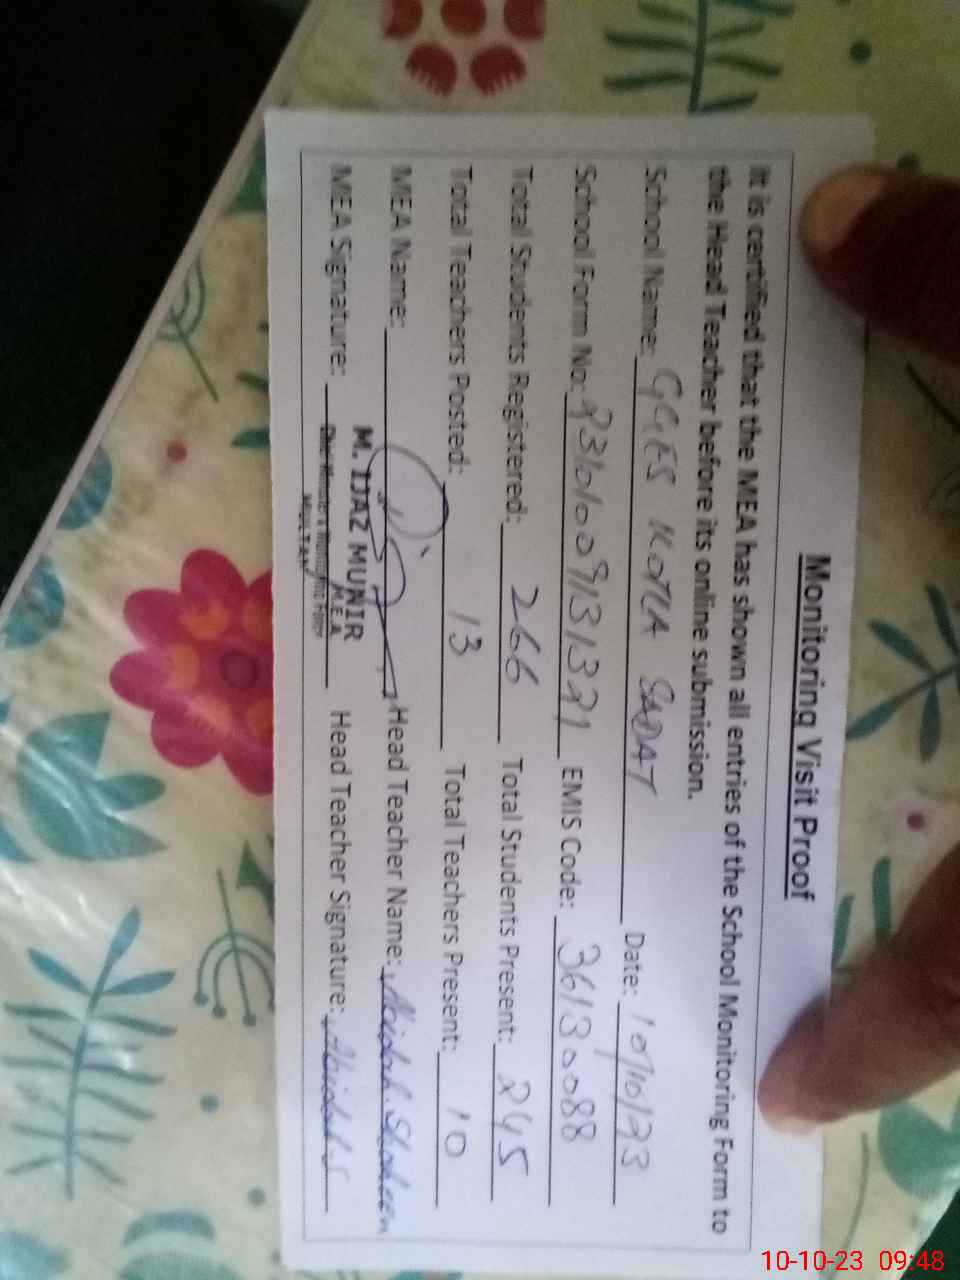 Monitoring Visit Proof
It is certified that the MEA has shown all entries of the School Monitoring Form to
the Head Teacher before its online submission.
School Name: GGES KOTLA SADAT Date: 10/10/23
School Form No: EMIS Code: 36130088
Total Students Registered: 266 Total Students Present: 245
Total Teachers Posted: 13 Total Teachers Present: 10
MEA Name: Head Teacher Name: Shaheen
M. IJAZ MUNIR
M.E.A
MEA Signature: Head Teacher Signature:
10-10-23 09:48